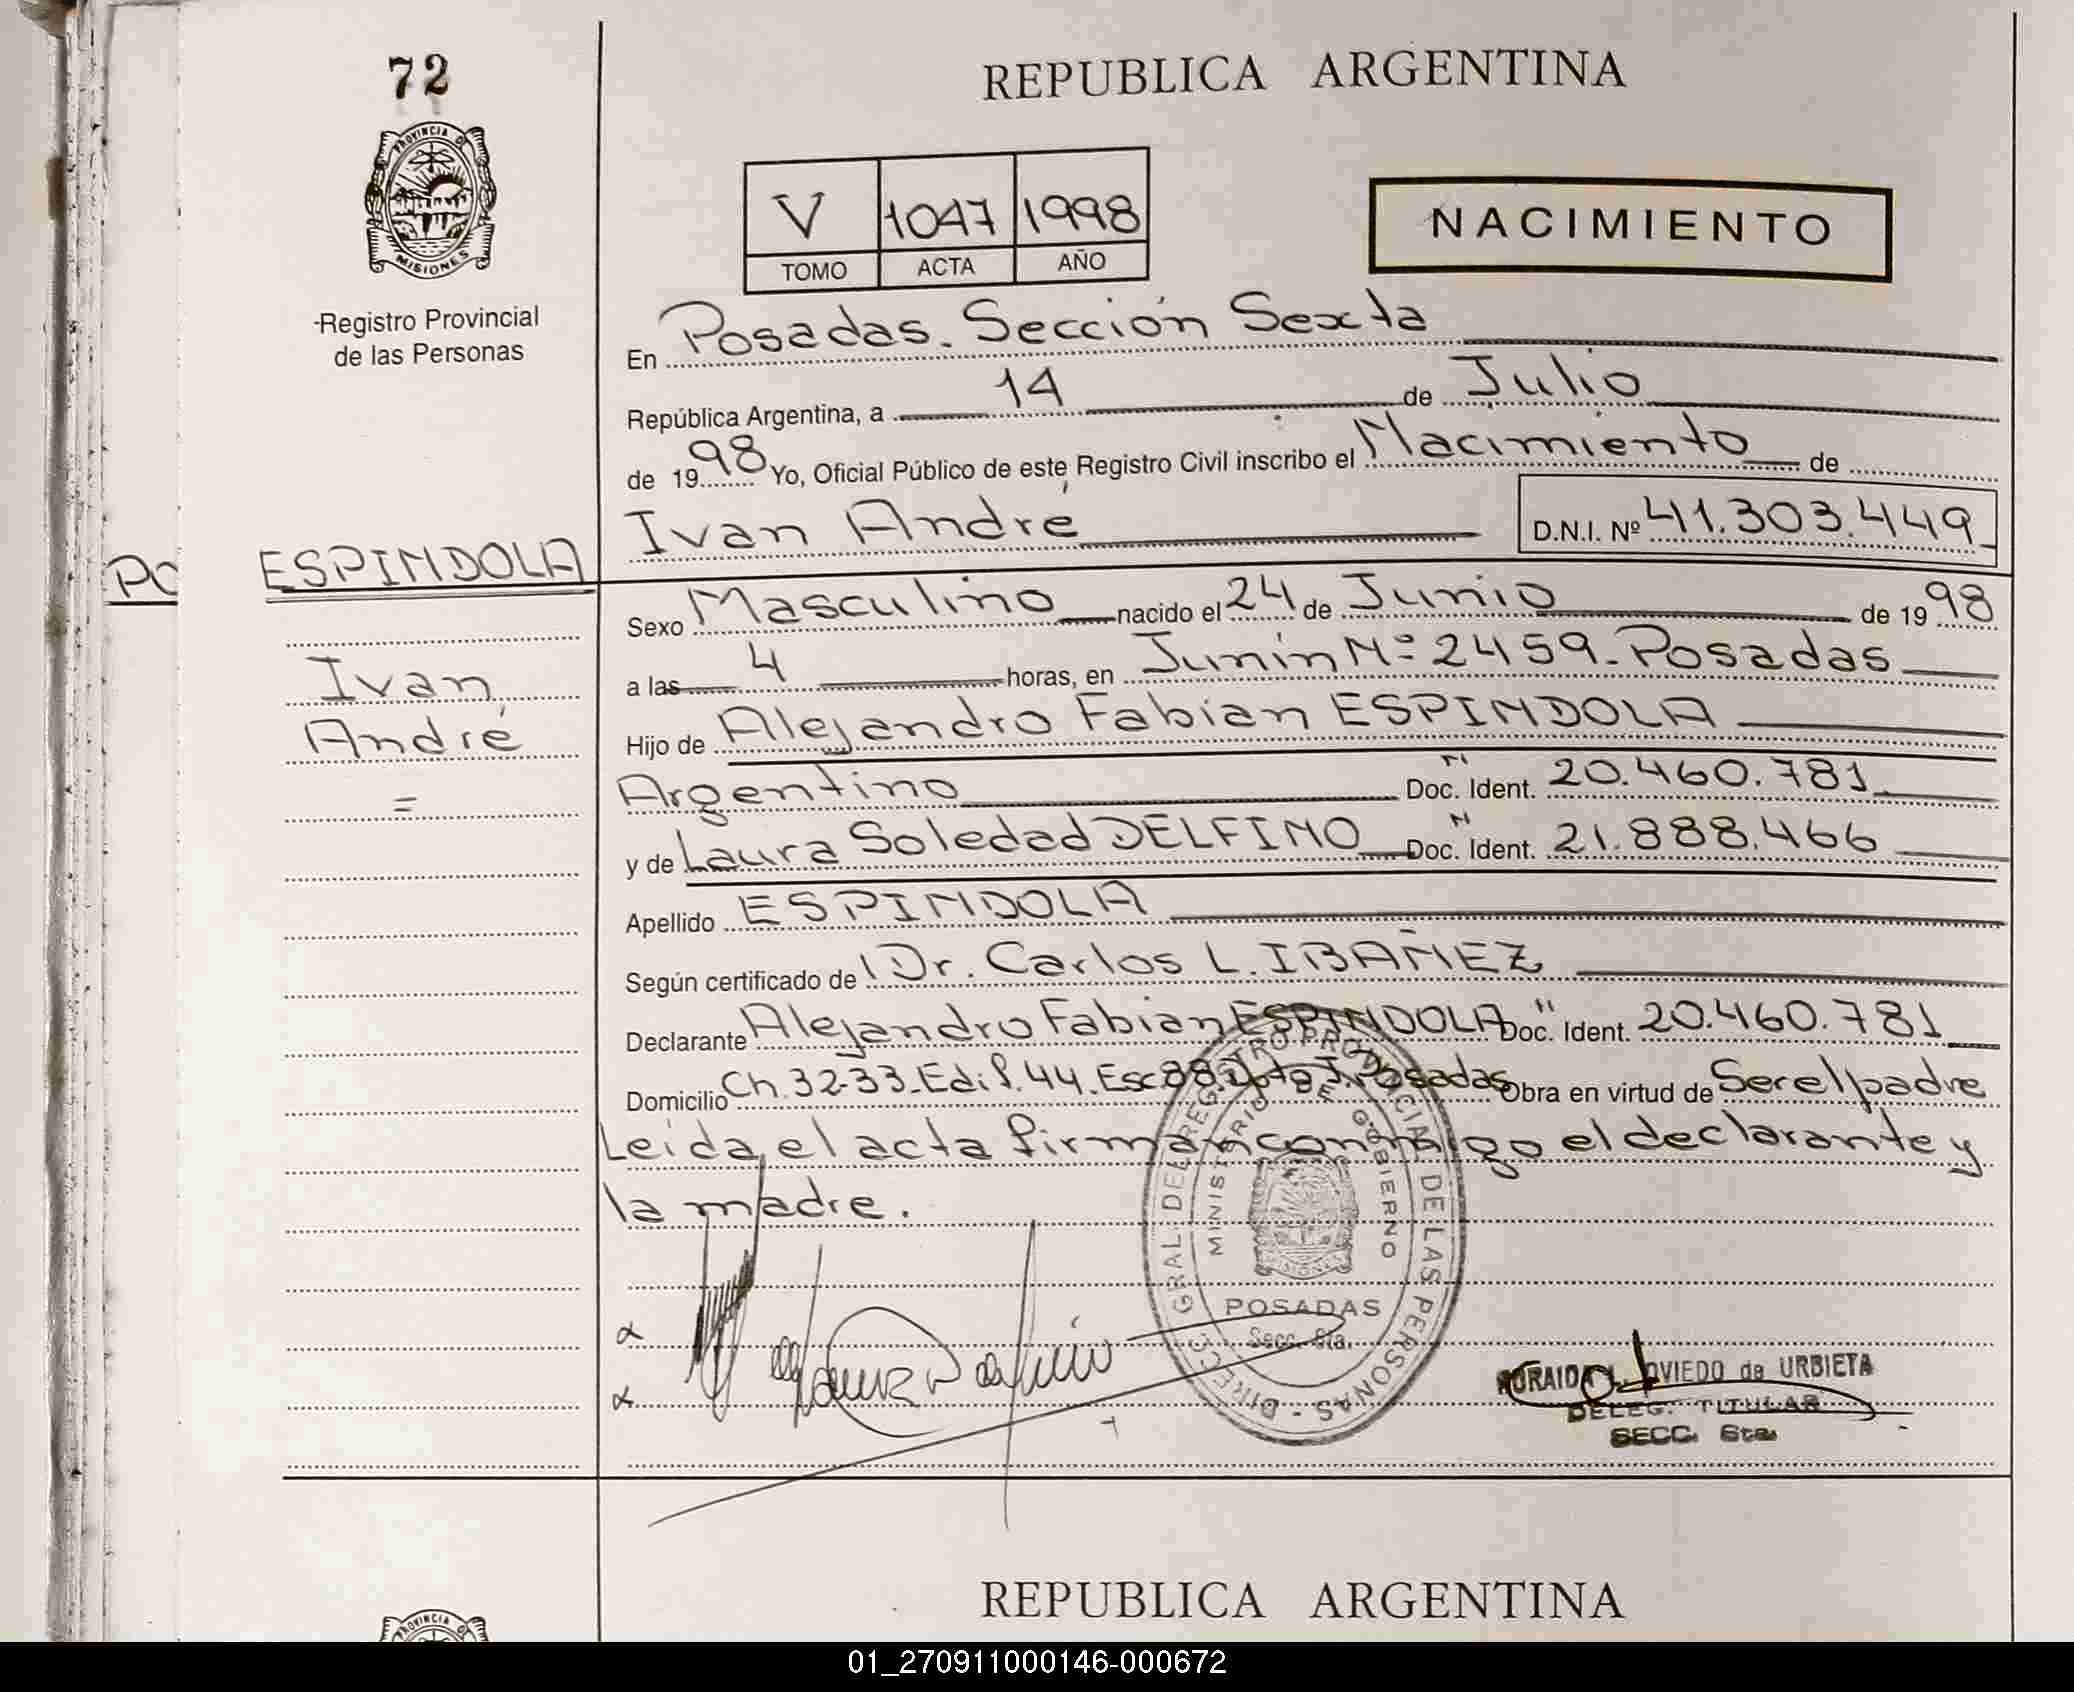 72
REPUBLICA ARGENTINA
PROVINCIA DE
MISIONES
V 1047 1998
TOMO ACTA AÑO
NACIMIENTO
Registro Provincial
de las Personas
En Posadas. Sección Sexta
República Argentina, a 14 de Julio
de 1998 Yo, Oficial Público de este Registro Civil inscribo el Nacimiento de
Ivan André D.N.I. Nº 41.303.449
PO
ESPINDOLA
Ivan
André
=
Sexo Masculino nacido el 24 de Junio de 1998
a las 4 horas, en Junín Nº 2459. Posadas
Hijo de Alejandro Fabian ESPINDOLA
Argentino Doc. Ident. 20.460.781
y de Laura Soledad DELFINO Doc. Ident. 21.888.466
Apellido ESPINDOLA
Según certificado de Dr. Carlos L. IBAÑEZ
Declarante Alejandro Fabian ESPINDOLA Doc. Ident. 20.460.781
Domicilio Ch. 32-33. Edif. 44. Esc 88 Posadas Obra en virtud de Ser el padre
Leida el acta firman conmigo el declarante y
la madre.
DIRECC. GRAL. DEL REGISTRO PROVINCIAL DE LAS PERSONAS
MINISTERIO DE GOBIERNO
MISIONES
POSADAS
Secc. 6ta.
OVIEDO de URBIETA
DELEG. TITULAR
SECC. 6ta.
REPUBLICA ARGENTINA
PROVINCIA
01_270911000146-000672